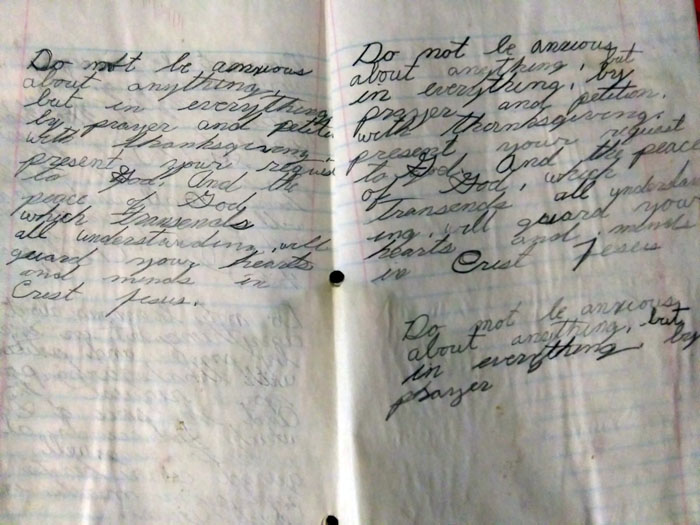 Do not be anxious
about anything,
but in everything
by prayer and petition
with thanksgiving,
present your request
to God. And the
peace of God,
which Transends
all understanding, will
guard your hearts
and minds in
Crest Jesus.
Do not be anxious
about anything, but
in everything, by
prayer and petition,
with thanksgiving,
present your request
to God. And the peace
of God, which
Transends all understand
ing, will guard your
hearts and minds
in Crest Jesus
Do not be anxious
about anything, but
in everything by
prayer